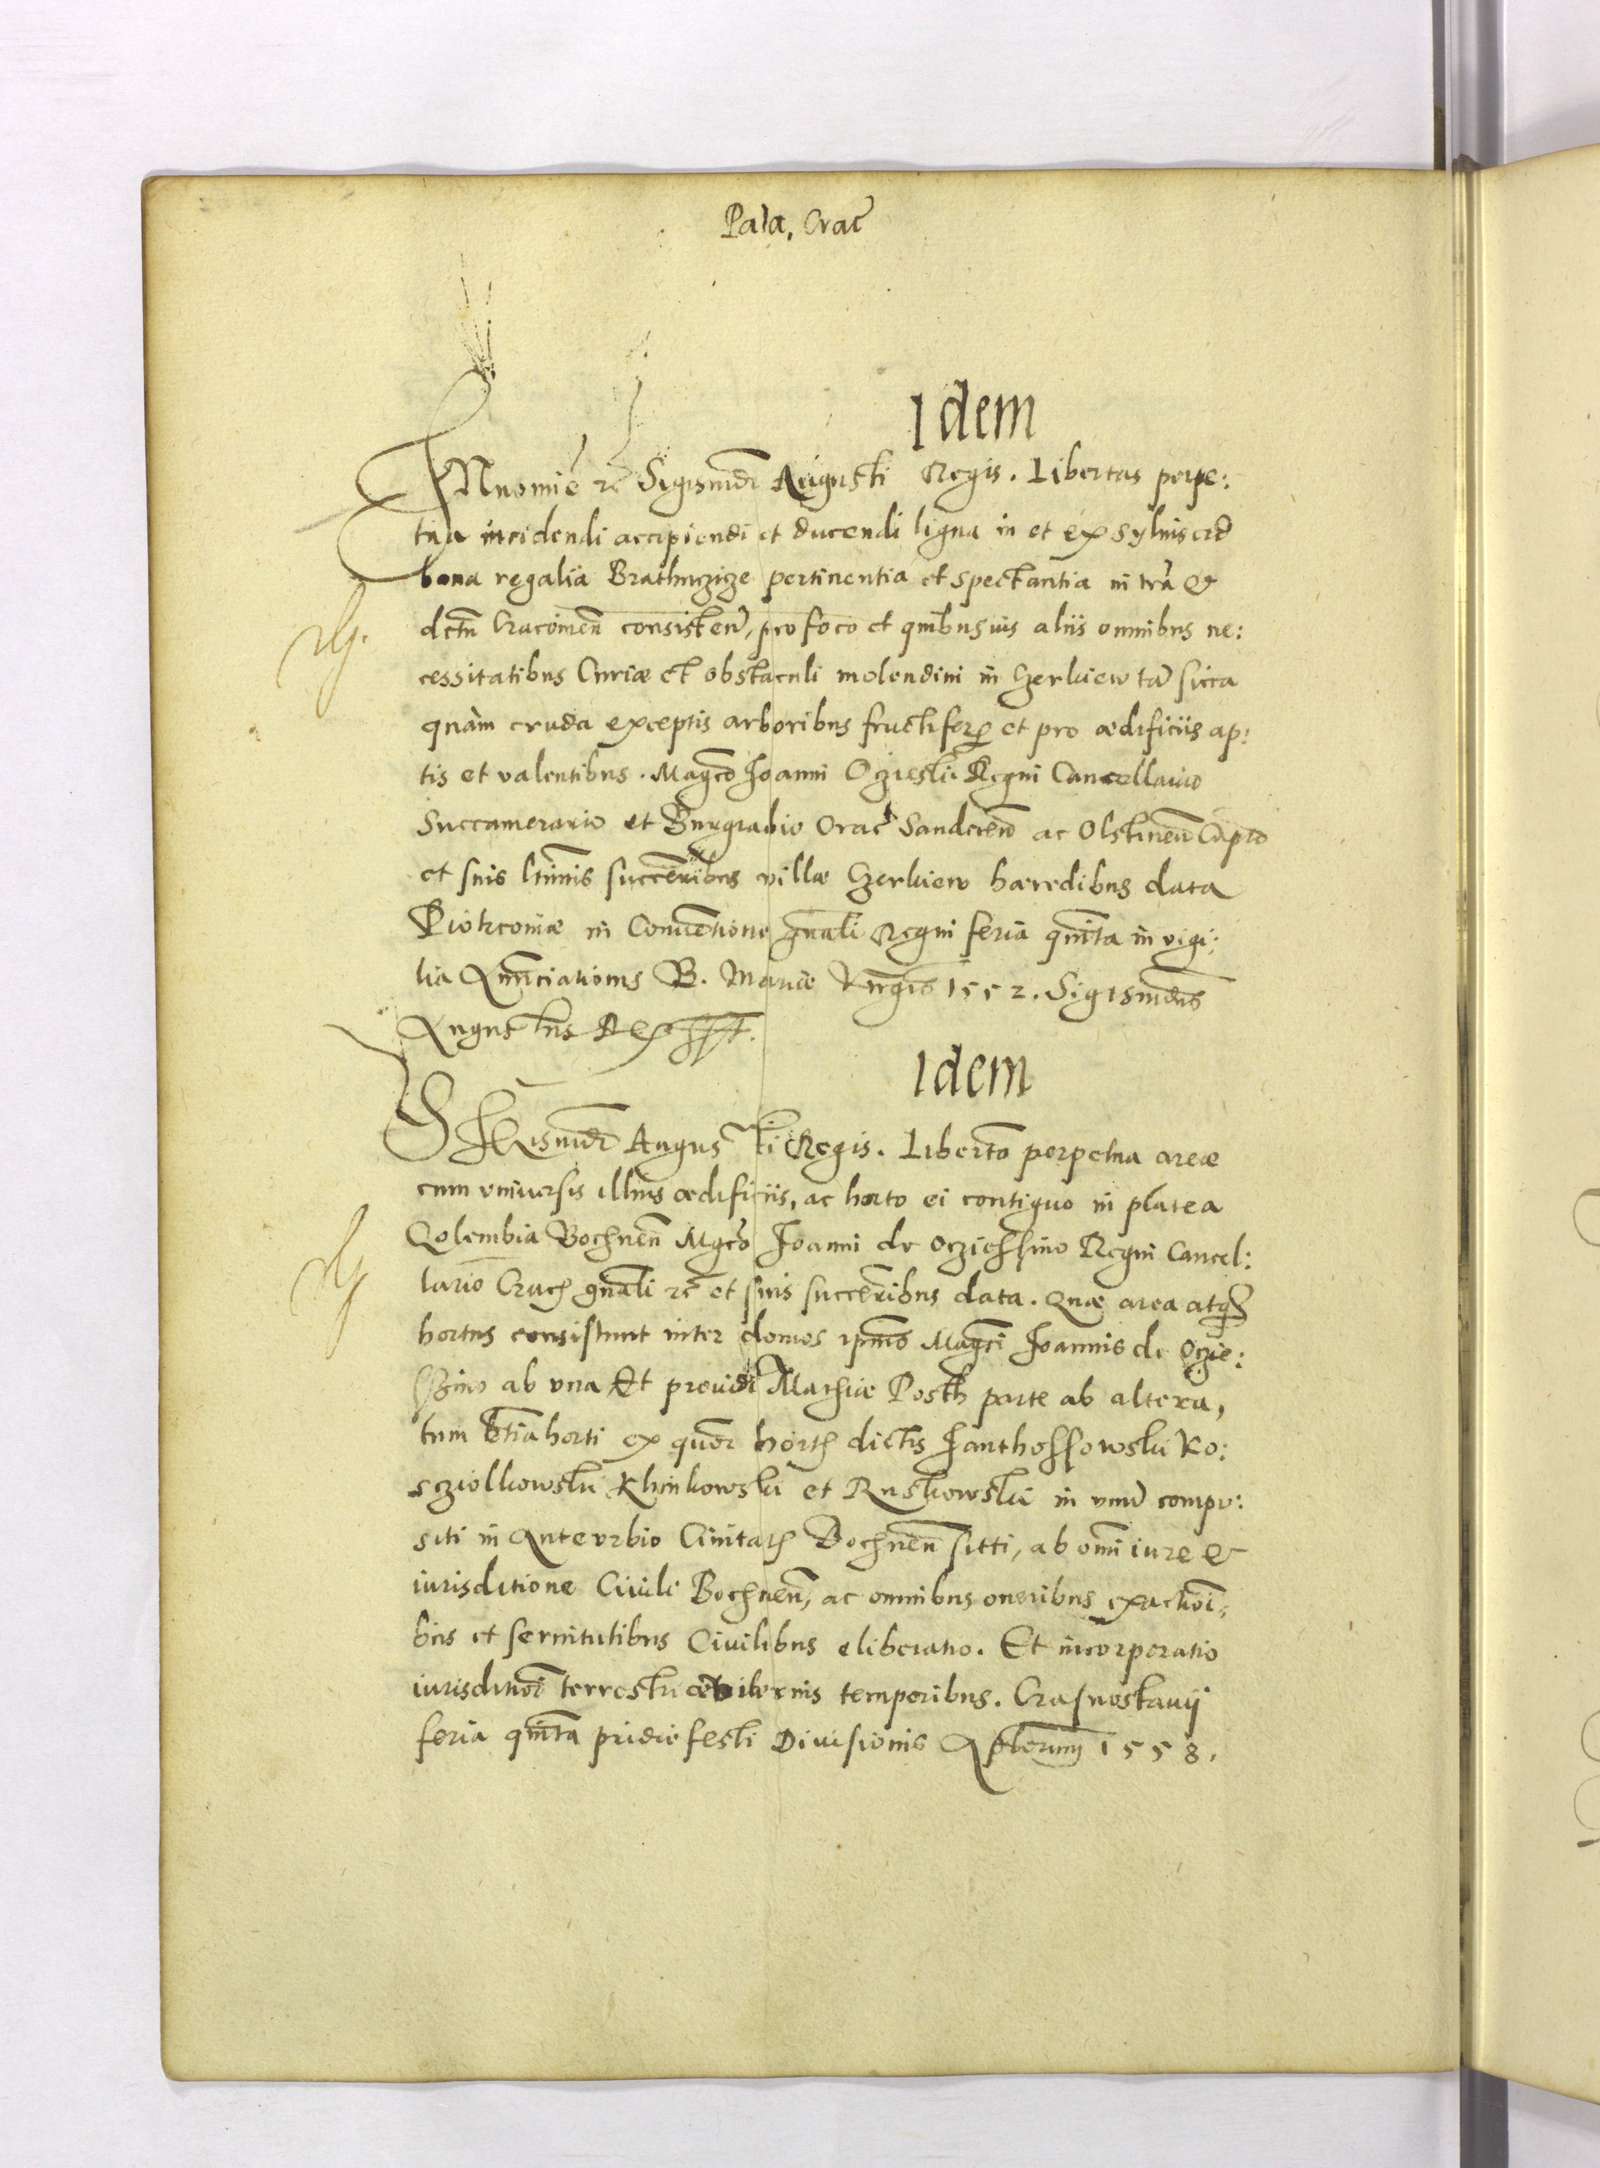 Pala. Crac̃
Idem
IN nomiē ꝛc̃ Sigismũdi Augusti Regis. Libertas perpe:
tua incidendi accipiendi et ducendi ligna in et ex syluis ad
bona regalia Brathuczicze pertinentia et spectantia in trã &
dctũ Cracouieñ consisteñ, pro foco et quibusuis aliis omnibus ne:
cessitatibus Curiæ et obstaculi molendini in Czerkiew tã sicca
quàm cruda exceptis arboribus fructiferꝭ et pro ædificiis ap:
tis et valentibus. Magco Joanni Oczieski Regni Cancellario
Succamerario et Burgrabio Crac̃ Sandeceñ ac Olstineñ Capto
et suis ltimis succeribus villæ Czerkiew hæredibus data
Piotrcouiæ in Conuentione gnali Regni feria quinta in vigi:
lia Annunciationis B. Mariæ Virgis 1552. Sigismũdus
Augustus Rex sst.
Idem
Sigismũdi Augusti Regis. Libertõ perpetua areæ
cum vniuersis illius ædificiis, ac horto ei contiguo in platea
Golembia Bochneñ Mgco Joanni de Oczieschino Regni Cancel:
lario Cracꝭ gnali ꝛc̃ et suis succeribus data. Quæ area atqꝫ
hortus consistunt inter domos ipius Magci Joannis de Oczie:
sszino ab vna Et prouidi Mathiæ Posth parte ab altera,
tum etiã horti ex quõr hortꝭ dictis Janthossowski Ko:
scziolkowski Khinkowski et Ruskowski in vnũ compo:
siti in Ante vrbio Ciuitatꝭ Bochneñ sitti, ab omi iure &
iurisditione Ciuili Bochneñ, ac omnibus oneribus exactioi:
bus et seruitutibus Ciuilibus eliberatio. Et incorporatio
iurisditioi terrestri æuiternis temporibus. Crasnostauij
feria quinta pridie festi Diuisionis Aplorum 1558.